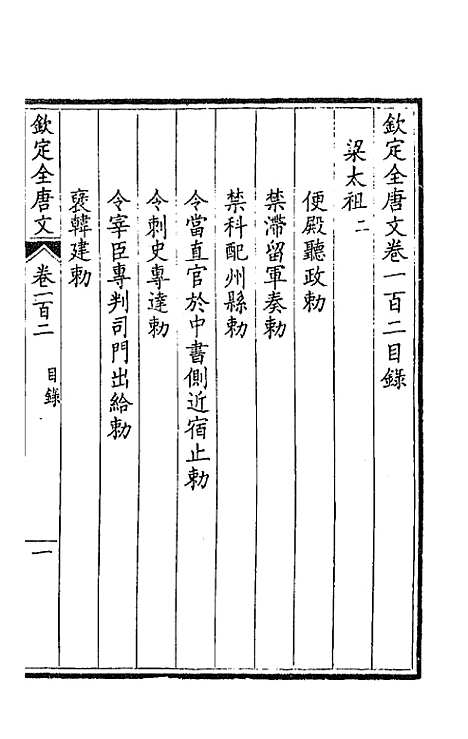 欽定全唐文卷一百二目錄
梁太祖二
便殿聽政勅
禁滯留軍奏勅
禁科配州縣勅
令當直官於中書側近宿止勅
令刺史專達勅
令宰臣專判司門出給勅
褒韓建勅
欽定全唐文
卷一百二
目錄
一